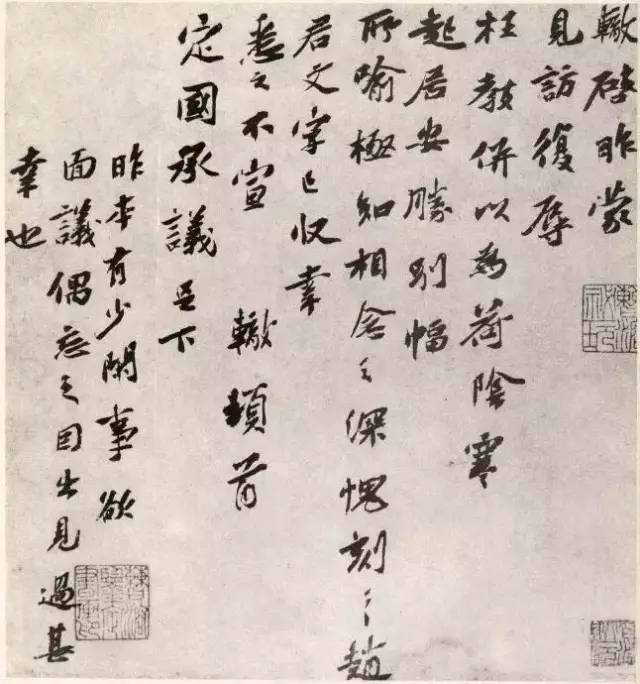 轍啓昨蒙
見訪復辱
枉教併以為荷陰寒
起居安勝别幅
所喻極知相念之深愧刻之趙
君文字已收幸
悉之不宣 轍頓首
定國承議足下
昨本有少閑事欲
面議偶忘之因出見過甚
幸也